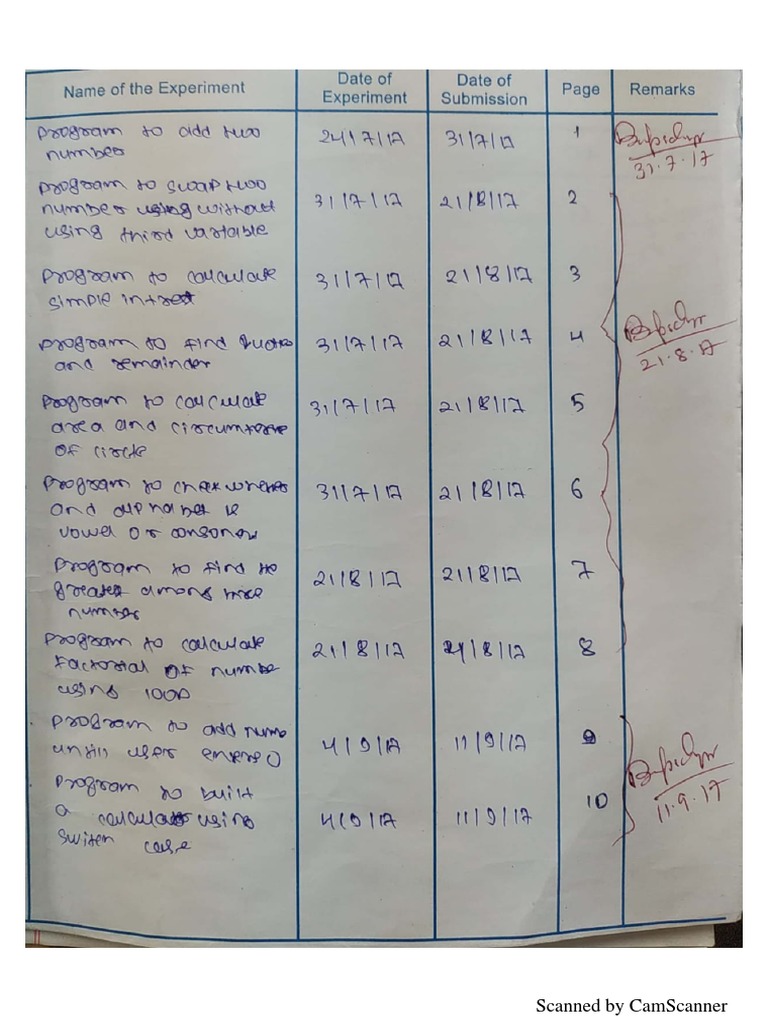 Name of the Experiment Date of Experiment Date of Submission Page Remarks
Program to add two 24/7/17 31/7/17 1
number 31.7.17
Program to swap two
number using without 31/7/17 21/8/17 2
using third variable
Program to calculate 31/7/17 21/8/17 3
simple intrest
Program to find 31/7/17 21/8/17 4
and remainder 21.8.17
Program to calculate 31/7/17 21/8/17 5
area and
of circle
Program to 31/7/17 21/8/17 6
and is
vowel or
Program to find
greatest among 21/8/17 21/8/17 7
number
Program to calculate 21/8/17 8
factorial of
using loop
Program to add 9
until user enter 0 4/9/17 11/9/17
Program to built 10
a using 4/9/17 11/9/17 11.9.17
switch case
Scanned by CamScanner